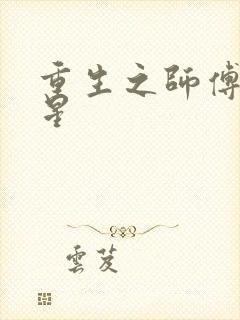 重生之師傅
星
雲芨